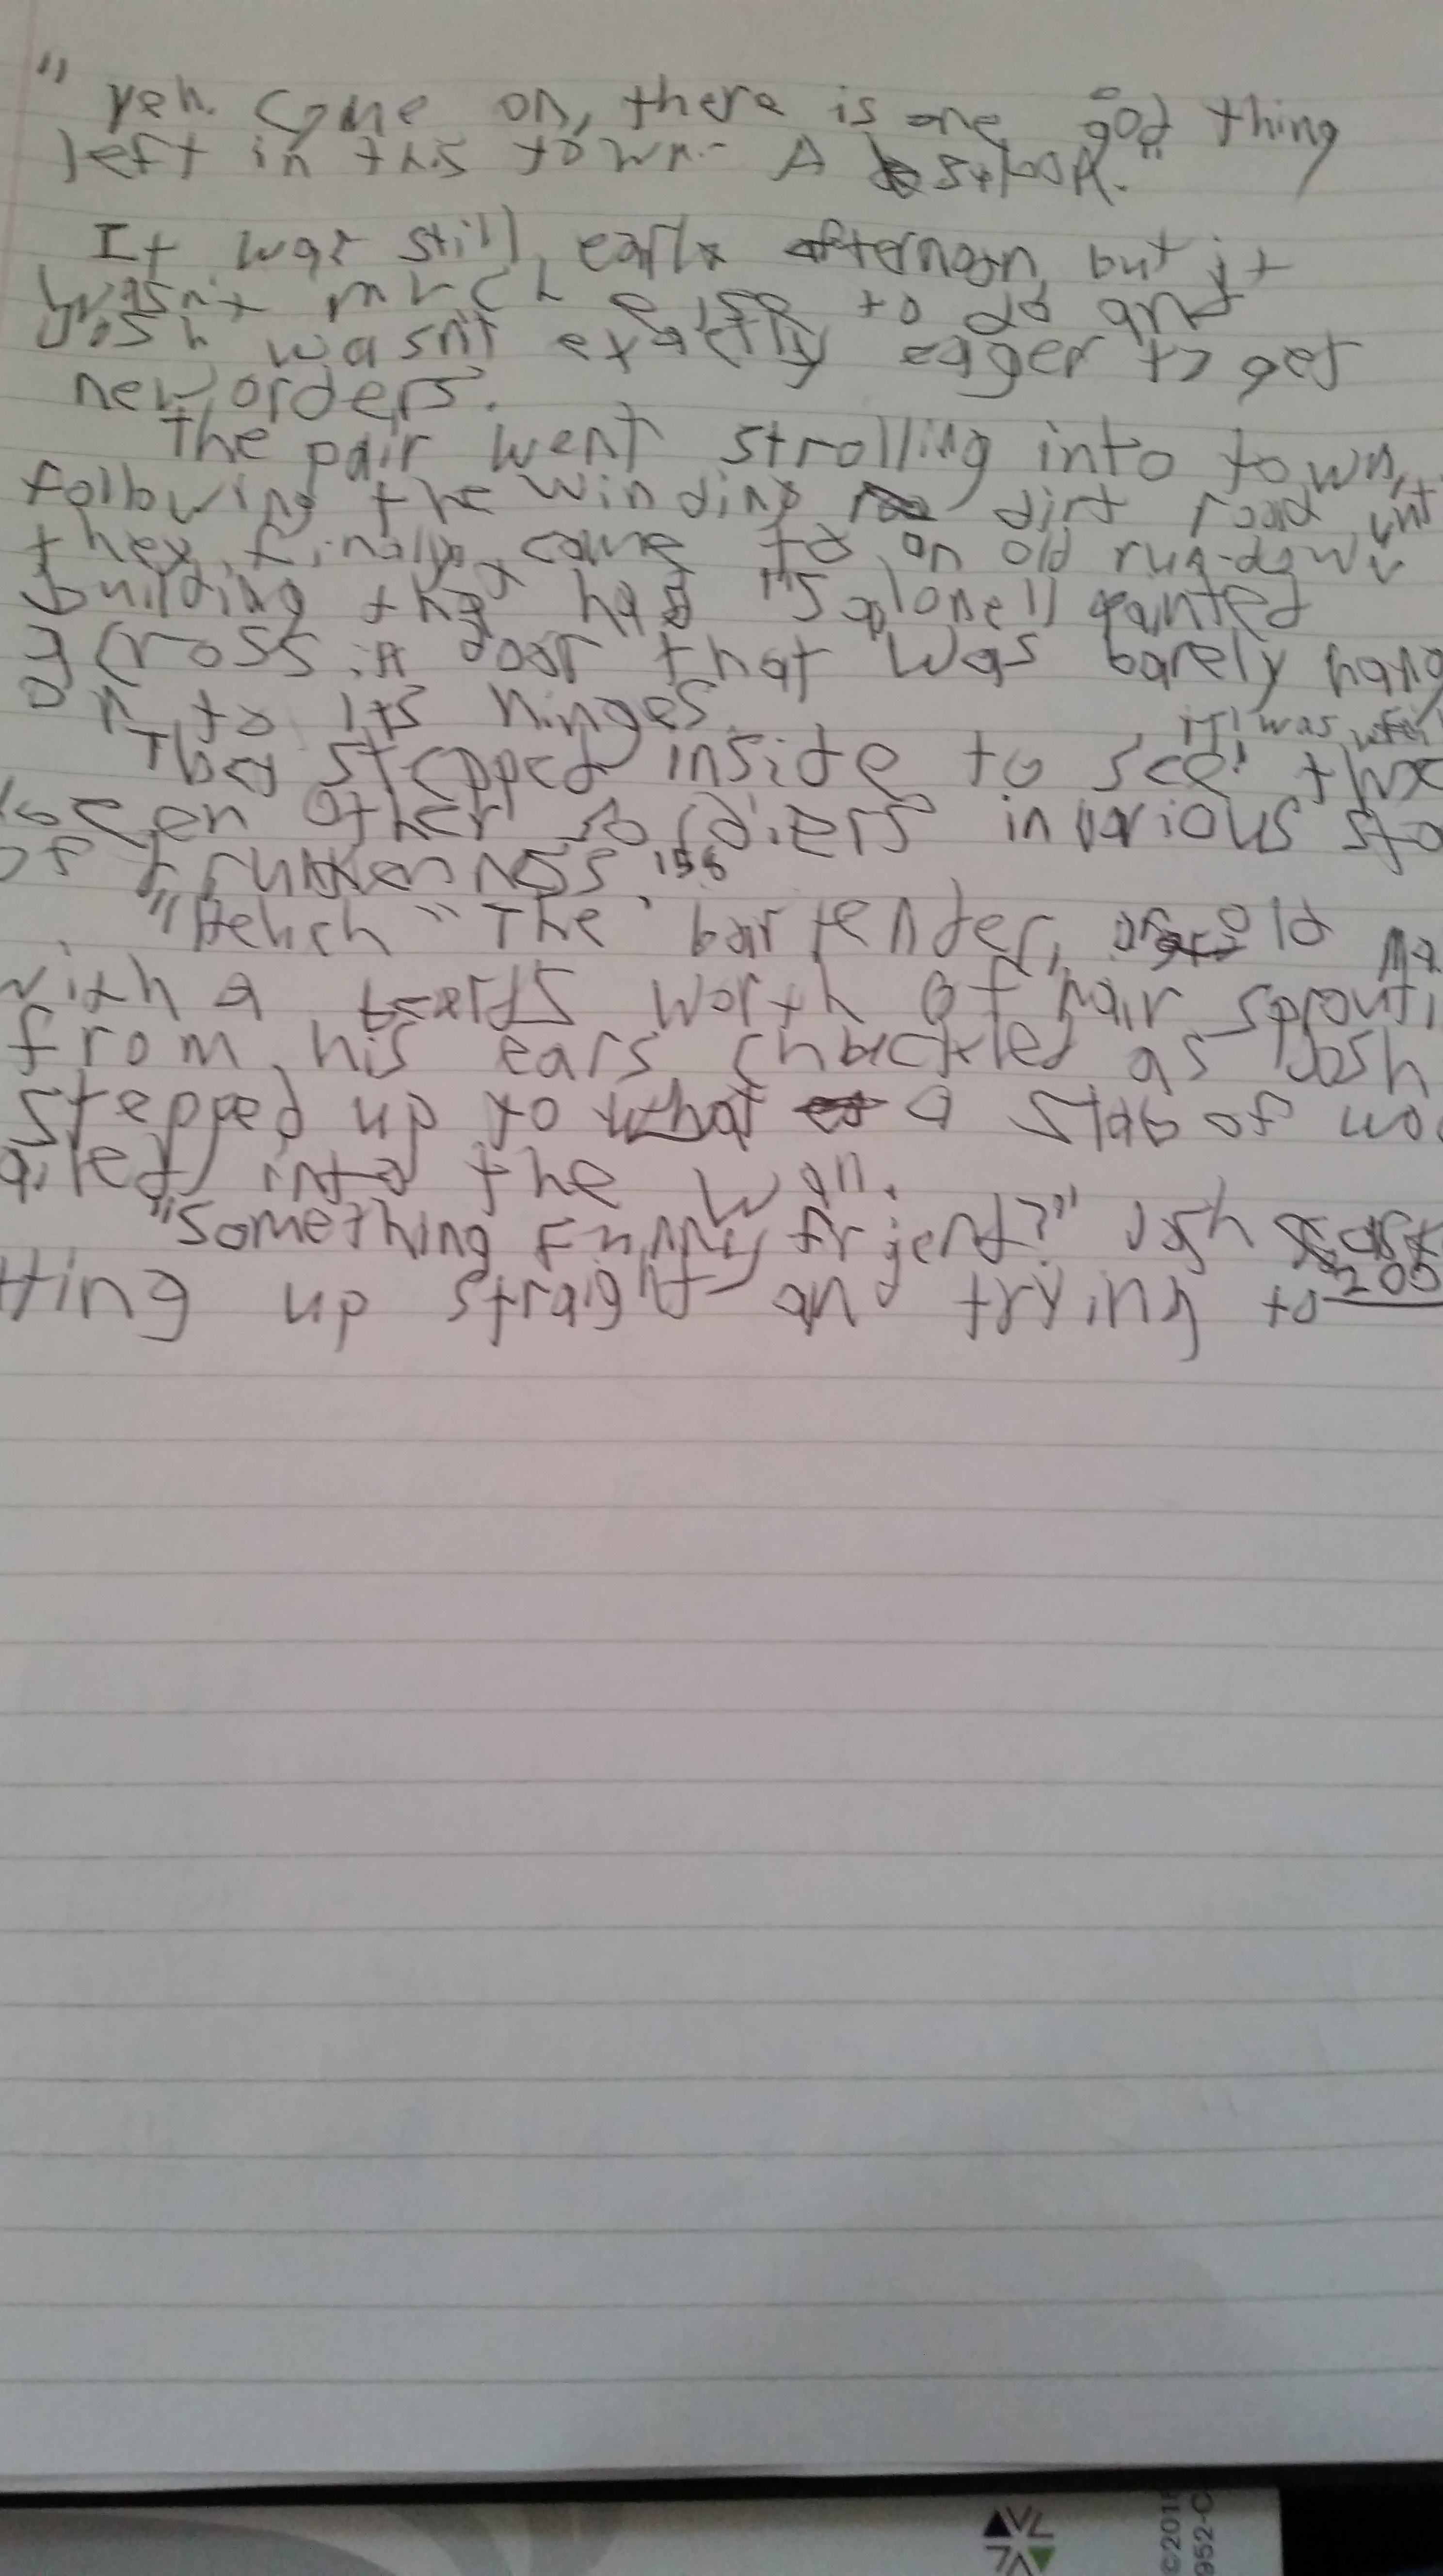 "yeh. Come on, there is one good thing
left in this town. A saloon."
It was still early afternoon but it
wasn't much else to do and
Josh wasn't exactly eager to get
new orders.
The pair went strolling into town,
following the winding dirt road unt
they finally came to an old run-down
building that had "Salone" painted
across a door that was barely hang
on to its hinges
it was
They stepped inside to see
other soldiers in various sta
of drunkenness. 156
"The bartender, old ma
with a worth of hair sprouti
from his ears chuckled as Josh
stepped up to what a slab of wo
into the wall.
"Something funny friend?" Josh
tting up straight and trying to 200
©201
952-C